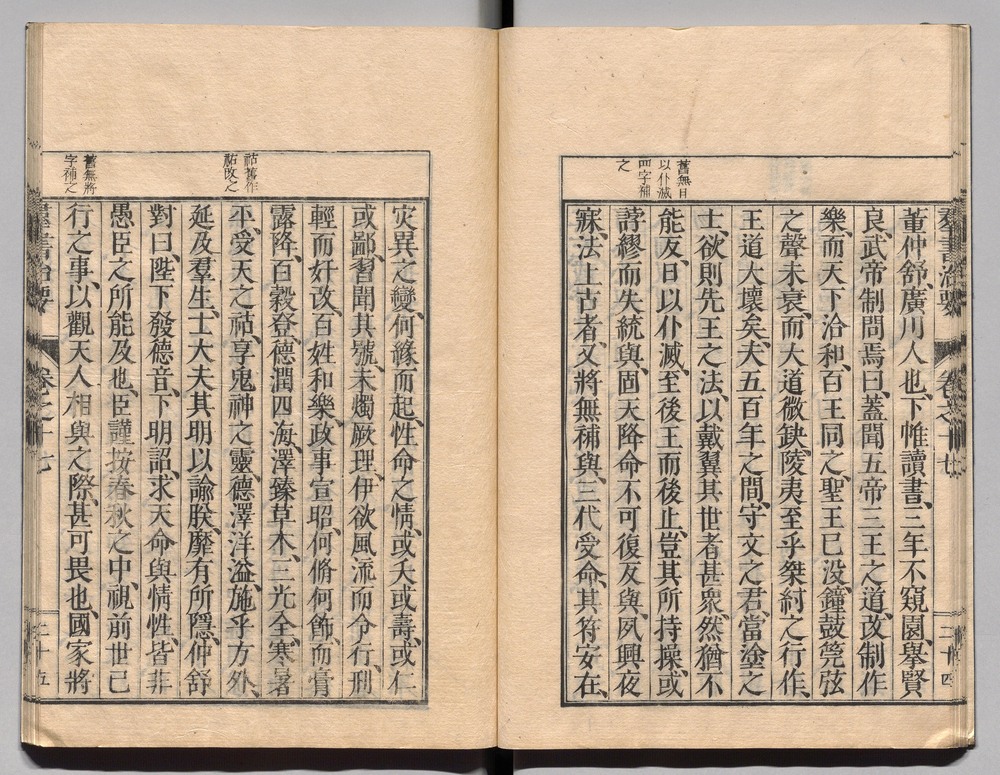 羣書治要
卷之十七
二十四
舊無日
以仆滅
四字補
之
董仲舒、廣川人也、下帷讀書、三年不窺園、擧賢
良、武帝制問焉曰、蓋聞五帝三王之道、改制作
樂、而天下洽和、百王同之、聖王已没、鐘鼓筦弦
之聲未衰、而大道微缺、陵夷至乎桀紂之行作、
王道大壞矣、夫五百年之間、守文之君、當塗之
士、欲則先王之法、以戴翼其世者甚衆、然猶不
能反、日以仆滅、至後王而後止、豈其所持操、或
誖繆而失統與、固天降命不可復反與、夙興夜
寐、法上古者、又將無補與、三代受命、其符安在、
祜舊作
祐改之
舊無將
字補之
災異之變、何緣而起、性命之情、或夭或壽、或仁
或鄙、習聞其號、未燭厥理、伊欲風流而令行、刑
輕而奸改、百姓和樂、政事宣昭、何脩何飾、而膏
露降、百穀登、德潤四海、澤臻草木、三光全、寒暑
平、受天之祜、享鬼神之靈、德澤洋溢、施乎方外、
延及羣生、士大夫其明以諭朕、靡有所隱、仲舒
對曰、陛下發德音、下明詔、求天命與情性、皆非
愚臣之所能及也、臣謹按春秋之中、視前世已
行之事、以觀天人相與之際、甚可畏也、國家將
羣書治要
卷之十七
二十五